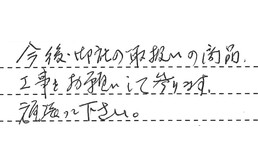 今後、御社の取扱いの商品、
工事をお願いして参ります。
頑張って下さい。